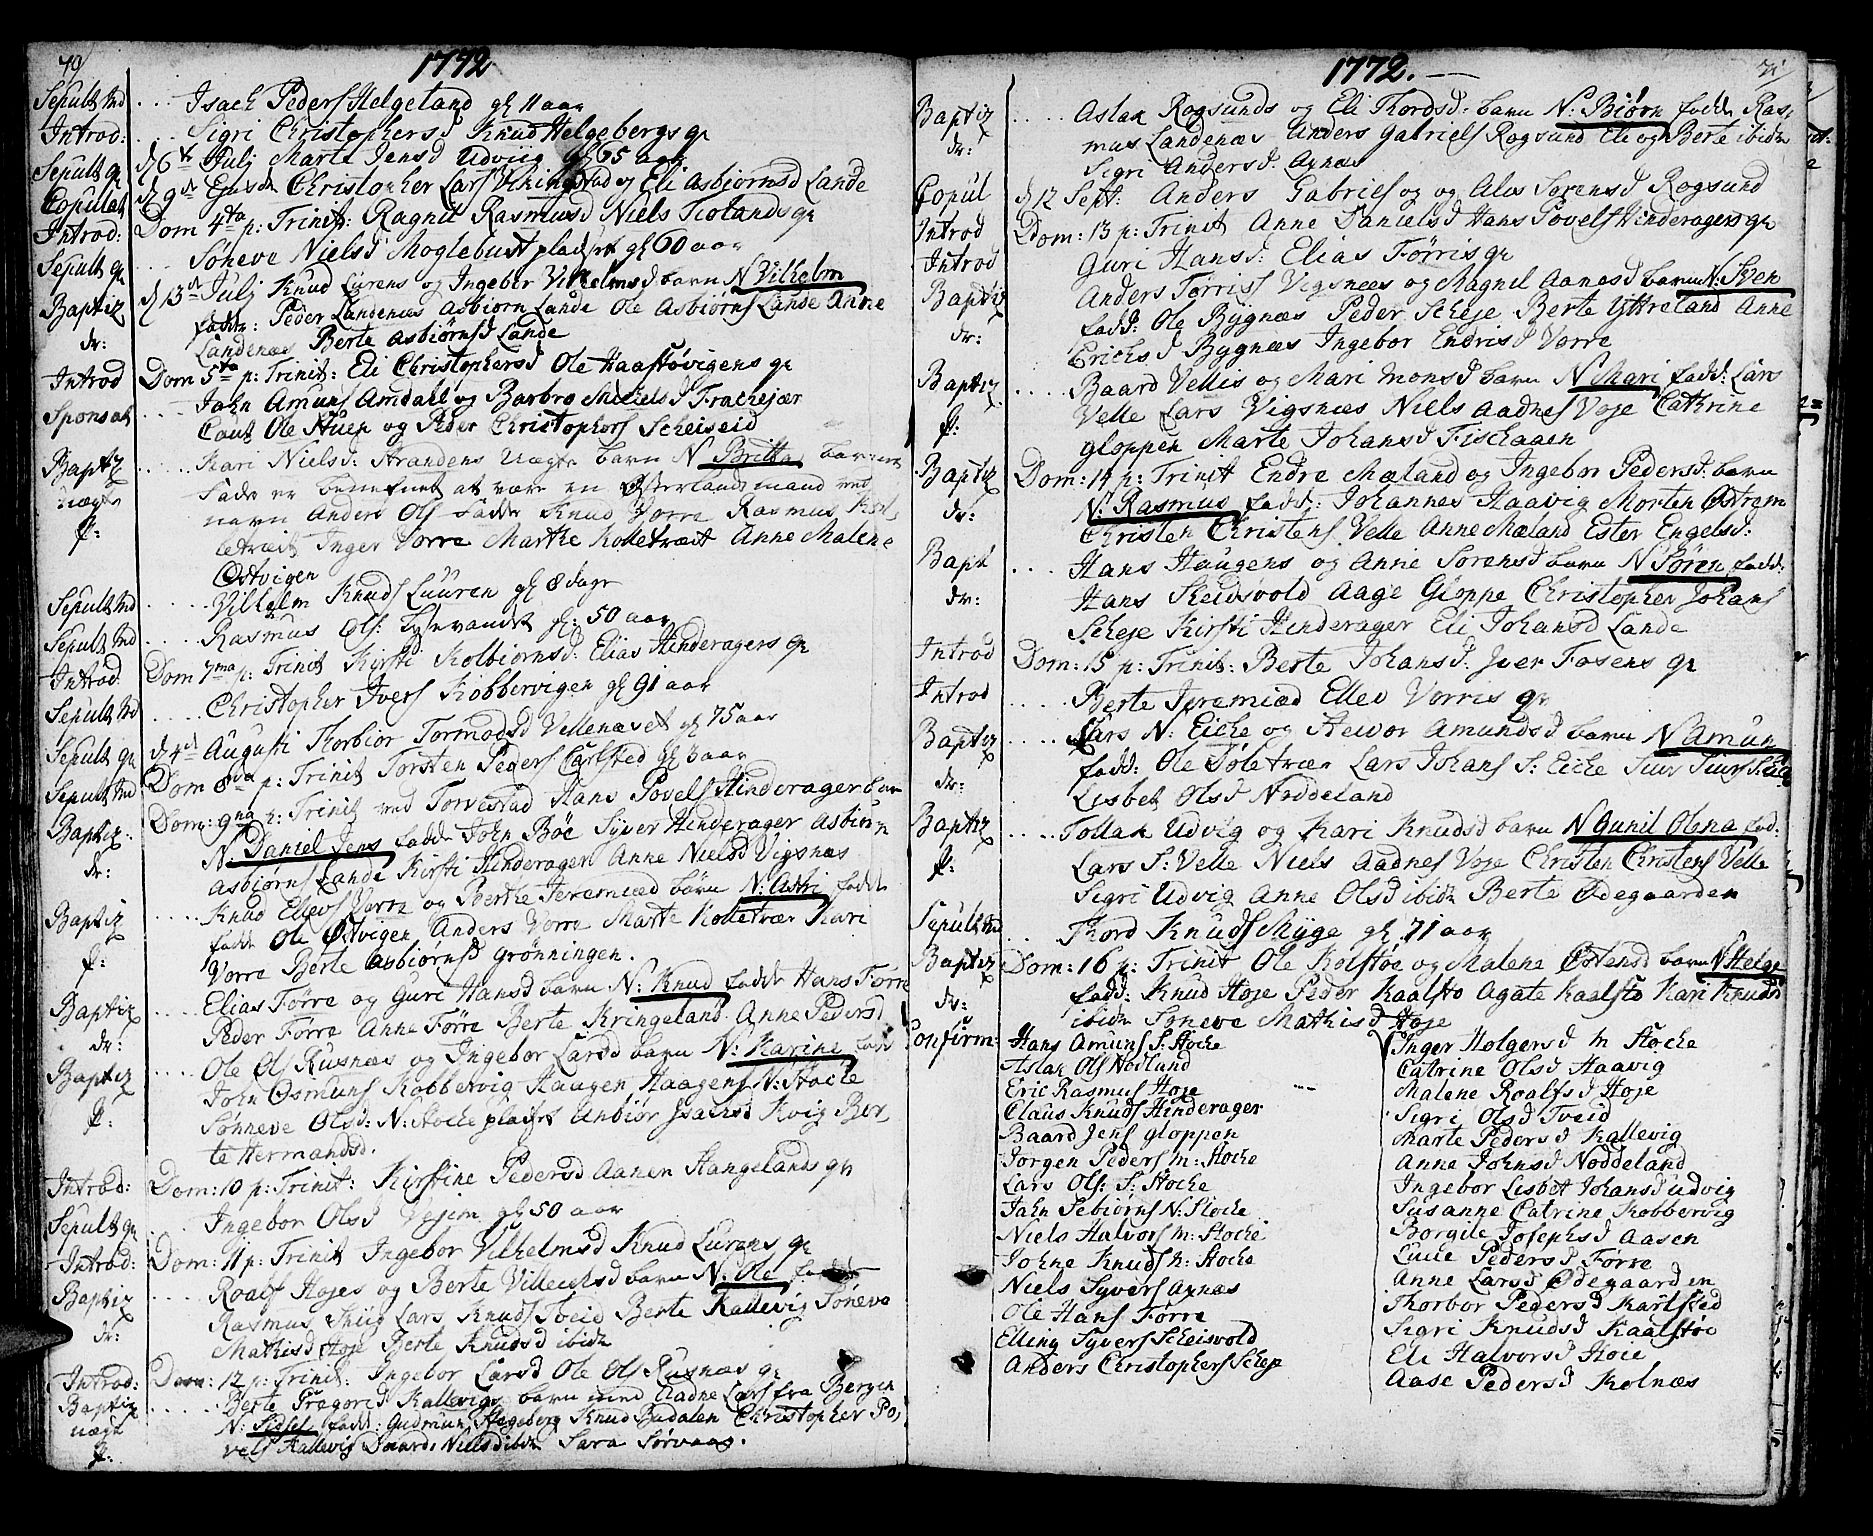 70
1772
Sepult Md .... Isach Peders Helgeland gl 11 aar
Introd: ... Sigri Christophersd Knud Helgebergs qr
Sepult qr d 6te Julj Marte Jensd Udviig gl 65 aar
Copulat d 9de Christopher Lars Vikingstad og Eli Asbiørnsd Lande
Introd: Dom 4ta p: Trinit: Ragnil Rasmusd Niels qr
Sepult qr .... Søneve Nielsd Moglebust pladset gl 60 aar
Baptiz d 13de Julj Knud Lurens og Ingebor Vilhelmsd barn N Vilhelm
dr: fadr: Peder Landenæs Asbiørn Lande Ole Asbiørns Lande Anne
Landenæs Berte Asbiørnsd Lande
Introd Dom 5ta p: Trinit: Eli Christophersd Ole Haastøvigens qr
Sponsat .... Jahn Amuns Amdahl og Barbro Nielsd
Caut Ole Stuen og Peder Christophers Scheiseid
Baptiz ...... Kari Nielsd: Strandens Uægte barn N Britta barnet
uægte Fader er benefnet at være en Østerlands mand ved
p: navn Anders Ols Faddr Knud Vorre Rasmus Kol,
letræit Inger Vorre Marthe Kolletræit Anne Malene
Østvigen
Sepult Md ..... Vilhelm Knuds Luuren gl 8 dage
Sepult Md ..... Rasmus Ols: Lysevandet gl: 50 aar
Introd: Dom 7ma p: Trinit Kirsti Kolbiørnsd: Elias Hinderagers qr
Sepult Md ..... Christopher Ivers Kobbervigen gl 91 aar
Sepult qr d 4de Augusti Thorbior Tormodsd Vellenæset gl 75 aar
Sepult Md Dom 8va p: Trinit Torsten Peders Carlsted gl 3 aar
Baptiz: Dom: 9na p: Trinit ved Torvestad Hans Povels Hinderager barn
dr: N: Daniel Jens fadd: John Bøe Syver Hinderager Asbiørn
Asbiørns Lande Kirsti Hinderager Anne Nielsd Vigsnæs
Baptiz ..... Knud Ellevs Vorre og Berthe Jeremiæd barn N: Astri fadd:
p: fadd: Ole Østvigen Anders Vorre Marte Kolletræe Kari
Vorre Berte Asbiørnsd Grønningen.
Baptiz ..... Elias Førre og Guri Hansd barn N: Knud fadd: Hans Førre
dr: Peder Førre Anne Førre Berte Kringeland Anne Pedersd
Baptiz ..... Ole Ols Rusnæs og Ingebor Larsd barn N: Karine fadd
p: John Osmuns Kobbervig Haagen Haagens N: Stocke
Sønneve Olsd: N: Stocke pladset Anbiør Isachsd Kvig Ber,
te Hermandsd.
Introd: Dom: 10 p: Trinit: Kirstine Pedersd Aanen Hangelands qr
Sepult qr ... Ingebor Olsd Vejem gl 50 aar
Introd: Dom: 11 p: Trinit Ingebor Vilhelmsd Knud Lurens qr
Baptiz ..... Roalf Højes og Berte barn N: Ole fadd
dr: Rasmus Kiig Lars Knuds Tveid Berte Kallevig Søneve
Mathisd Høje Berte Knudsd ibide
Introd: Dom: 12 p: Trinit: Ingebor Larsd Ole Ols Rusnæs qr
Baptiz ...... Berte Kallevigs barn med Aadne Lars fra Bergen
uægt N: Sidsel fadd: Gudmun Hegeberg Knud Budalen Christopher Po,
p: vels Kallevig Nielsd ibide Sara Sørvaag.
71
1772.
Baptiz ..... Aslak Rogsunds og Eli Thordsd: barn N: Biørn fadd: Ras,
dr: mus Landenæs Anders Gabriels Rogsund Eli og Berte ibide
Sigri Andersd Aynæs
Copul d 12 Sept: Anders Gabriels og Sørensd Rogsund
Introd Dom: 13 p: Trinit Anne Danielsd Hans Povels Hinderagers qr
Introd Guri Hansd: Elias Førris qr
Baptiz Anders Tørris Vigsnæs og Magnil Aanesd barn N: Sven
dr: fadd: Ole Bygnæs Peder Scheje Berte Yttreland Anne
Erichsd Bygnæs Ingebor Endrisd Vorre
Baptiz ..... Baard Vellis og Mari Monsd barn N Mari fadd: Lars
p: Velle Lars Vigsnæs Niels Aadnes Voje Cathrine
Gloppen Marte Johansd Fischaaen
Baptiz Dom: 14 p: Trinit Endre Mæland og Ingebor Pedersd: barn
dr: N: Rasmus fadd: Johannes Haavig Morten Østrem
Christen Christens Velle Anne Mæland Ester Engelsd:
Bapt .... Hans Haugens og Anne Sørensd barn N Søren fadd:
dr: Hans Skeidsvold Aage Gloppe Christopher Johans
Scheje Kirsti Hinderager Eli Johansd Lande
Introd Dom: 15 p: Trinit: Berte Johansd: Iver Fosens qr
Introd ..... Berte Jeremiæd Ellev Vorris qr
Baptiz ..... Lars N: Eiche og Amundsd barn N Amun
dr: fadd: Ole Lars Johans S: Eiche
Lisbet Olsd Nøddeland
Baptiz .... Tollak Udvig og Kari Knudsd barn N Gunil Olena fad:
p: Lars S: Velle Niels Aadnes Voje Christen Christens Velle
Sigri Udvig Anne Olsd ibide Berte Ødegaarden
Sepult Md .. Thord Knuds Myge gl 71 aar
Baptiz Dom: 16 p: Trinit Ole Kolstøe og Malene Østensd barn N Helge
dr: fadd: Knud Høje Peder Kaalstø Agate Kaalstø Kari Knudsd
ibide Søneve Mathisd Høje
Confirm: Hans Amuns S: Stocke
Aslak Ols Nodland
Eric Rasmus Høje
Claus Knuds Hinderager
Baard Jens Gloppen
Jørgen Peders M: Stocke
Lars Ols: S: Stocke
Jahn Sebiørns N: Stocke
Niels Halvors M: Stocke
Johne Knuds M: Stocke
Niels Syvers Aynæs
Ole Hans Førre
Elling Syvers Scheisvold
Anders Christophers Scheje
Inger Holgersd M Stocke
Catrine Olsd Haavig
Malene Roalfsd Høje
Sigri Olsd Tveid
Marte Pedersd Kallevig
Anne Johnsd Nøddeland
Ingebor Lisbet Johansd Udvig
Susanne Catrine Kobbervig
Borgile Josephsd Aasen
Lucie Pedersd Førre
Anne Larsd Ødegaarden
Thorbor Pedersd Karlsted
Sigri Knudsd Kaalstøe
Eli Halvorsd Høie
Aase Pedersd Kolnæs